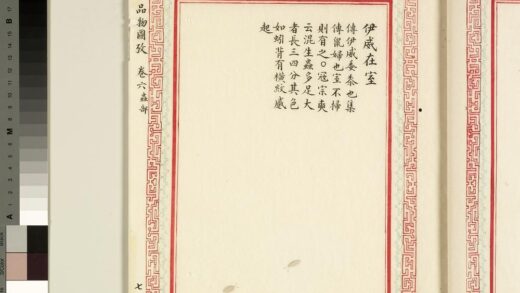 伊威在室
傳伊威委黍也集
傳鼠婦也室不掃
則有之〇寇宗奭
云湿生蟲多足大
者長三四分其色
如蚓背有横紋蹙
起
品物圖攷 卷六蟲部
七